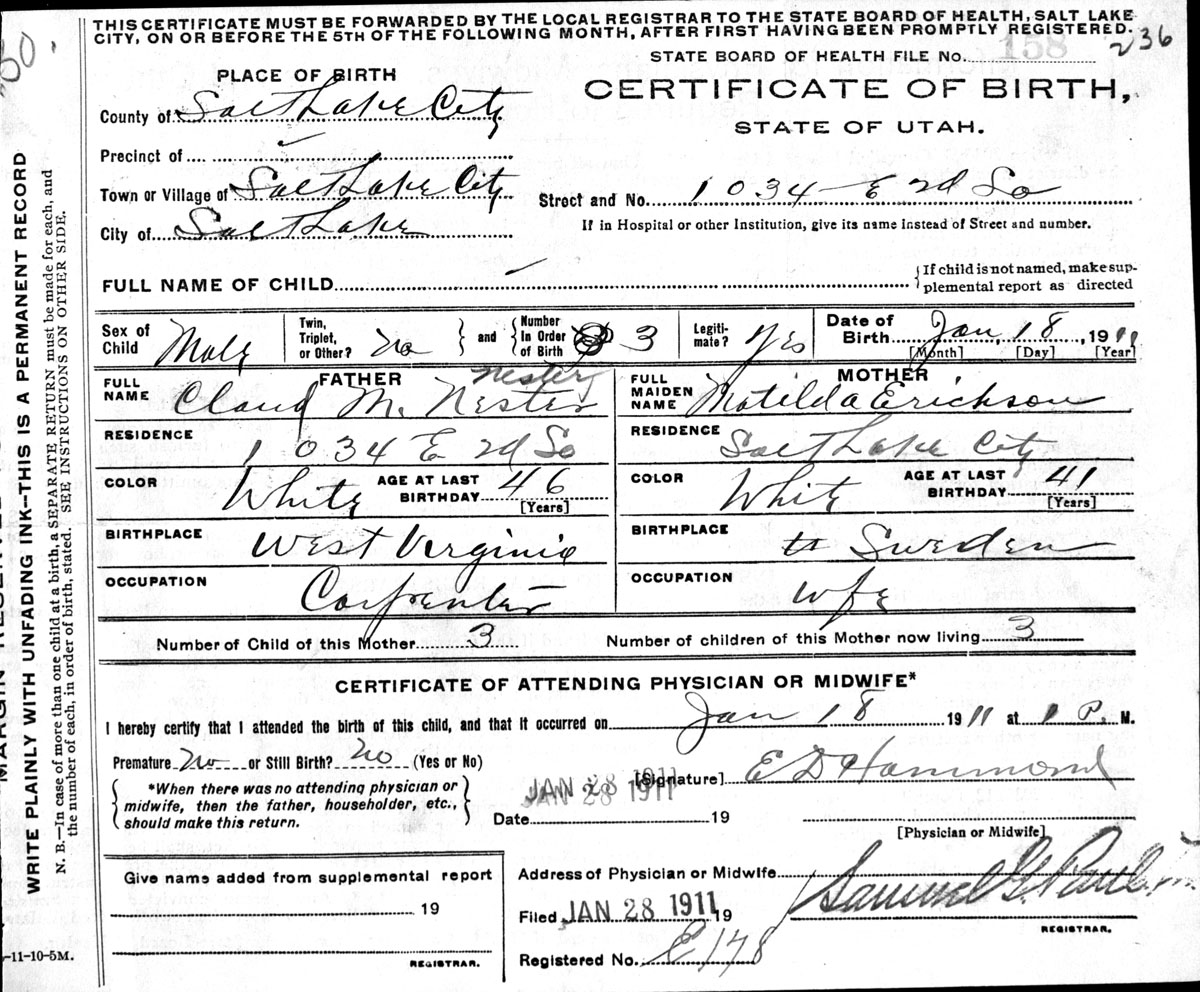 THIS CERTIFICATE MUST BE FORWARDED BY THE LOCAL REGISTRAR TO THE STATE BOARD OF HEALTH, SALT LAKE
CITY, ON OR BEFORE THE 5TH OF THE FOLLOWING MONTH, AFTER FIRST HAVING BEEN PROMPTLY REGISTERED.
236
STATE BOARD OF HEALTH FILE No. 158
PLACE OF BIRTH
CERTIFICATE OF BIRTH,
STATE OF UTAH.
County of Salt Lake City
Precinct of
Town or Village of Salt Lake City
Street and No. 1034 E 2d So
City of Salt Lake
If in Hospital or other Institution, give its name instead of Street and number.
FULL NAME OF CHILD
If child is not named, make sup-
plemental report as directed
Sex of Child Male
Twin, Triplet, or Other? no
and
Number In Order of Birth 3
Legiti-mate? Yes
Date of Birth Jan, 18, 1911
[Month] [Day] [Year]
FATHER
MOTHER
Nester
FULL NAME Claud M. Nester
FULL MAIDEN NAME Matilda Erickson
RESIDENCE 1034 E 2d So
RESIDENCE Salt Lake City
COLOR White AGE AT LAST BIRTHDAY 46 [Years]
COLOR White AGE AT LAST BIRTHDAY 41 [Years]
BIRTHPLACE West Verginia
BIRTHPLACE Sweden
OCCUPATION Carpenter
OCCUPATION wfe
Number of Child of this Mother 3 Number of children of this Mother now living 3
CERTIFICATE OF ATTENDING PHYSICIAN OR MIDWIFE*
I hereby certify that I attended the birth of this child, and that it occurred on Jan 18 1911 at 1 P. M.
Premature No or Still Birth? no (Yes or No)
JAN 28 1911
[Signature] E D Hammond
JAN 28 1911
*When there was no attending physician or
midwife, then the father, householder, etc.,
should make this return.
Date 19
[Physician or Midwife]
Give name added from supplemental report
19
REGISTRAR.
Address of Physician or Midwife
Samuel G. Paul
Filed JAN 28 1911 19
REGISTRAR.
Registered No. E178
-11-10-5M.
WRITE PLAINLY WITH UNFADING INK—THIS IS A PERMANENT RECORD
N. B.—In case of more than one child at a birth, a SEPARATE RETURN must be made for each, and
the number of each, in order of birth, stated. SEE INSTRUCTIONS ON OTHER SIDE.